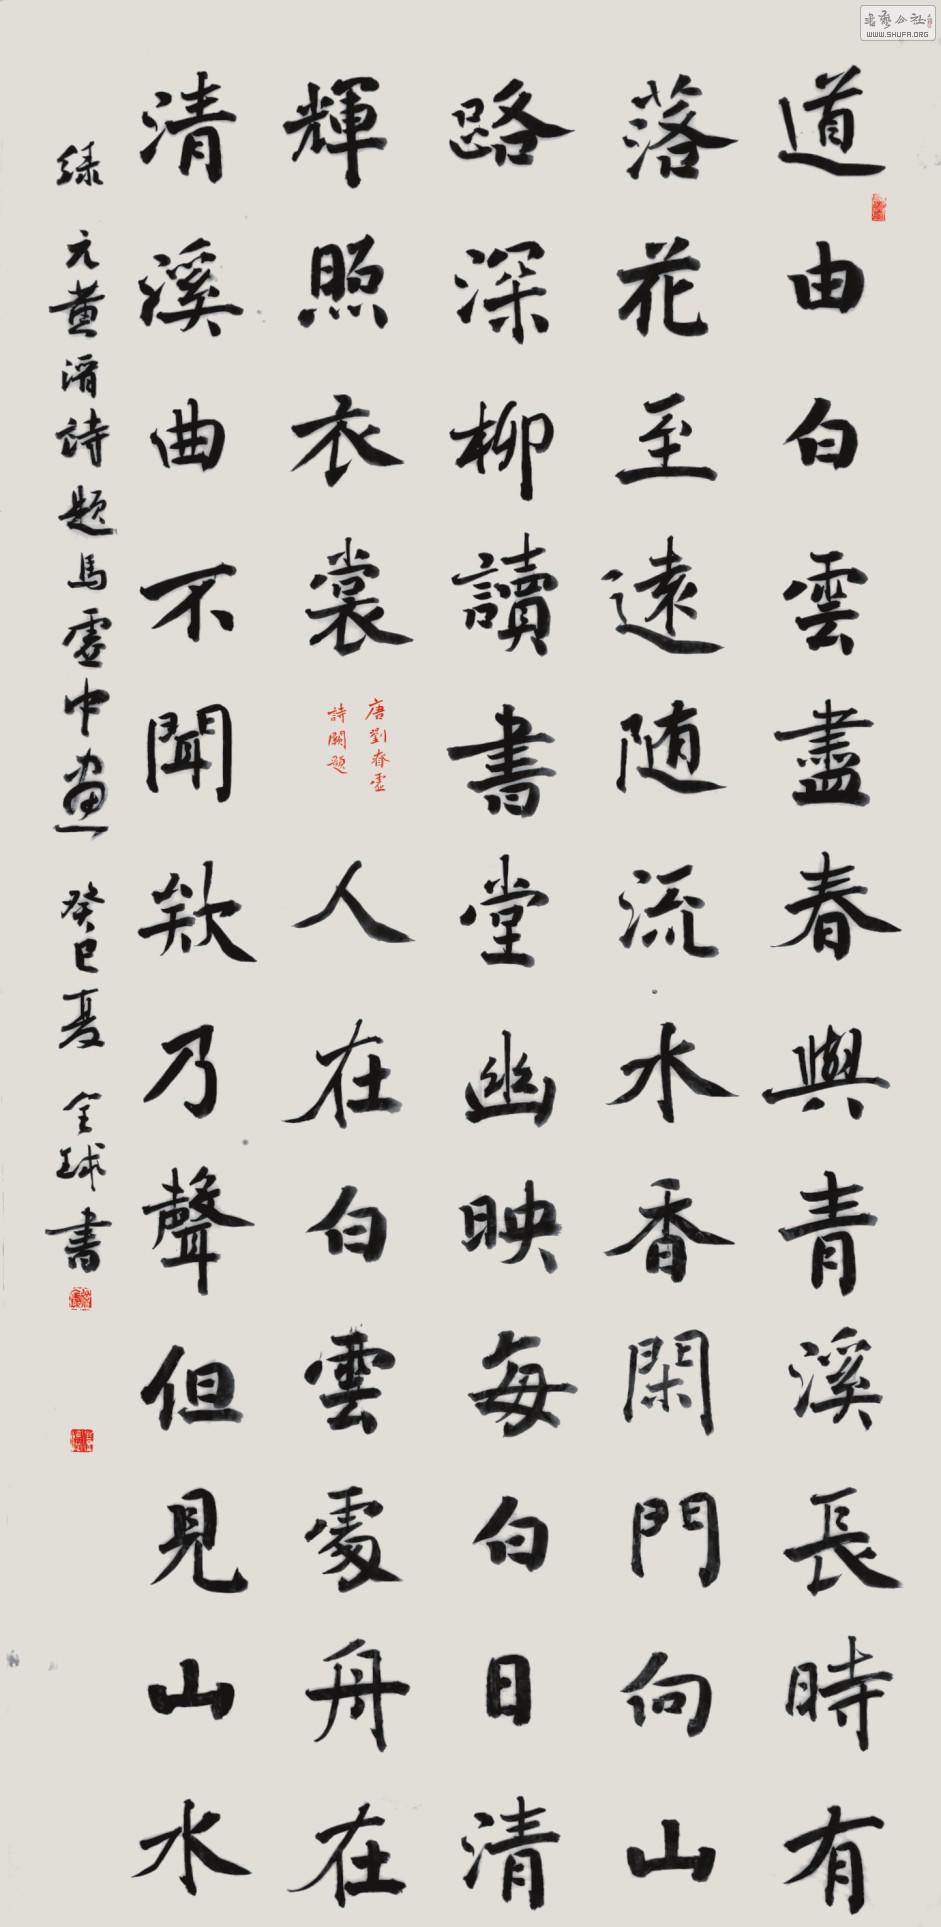 道由白雲盡春與青溪長時有
落花至遠随流水香閑門向山
路深柳讀書堂幽映每白日清
輝照衣裳
唐劉春虛
詩闕題
人在白雲處舟在
清溪曲不聞欸乃聲但見山水
緑 元黄溍詩題馬虛中画 癸巳夏 全球書
WWW.SHUFA.ORG